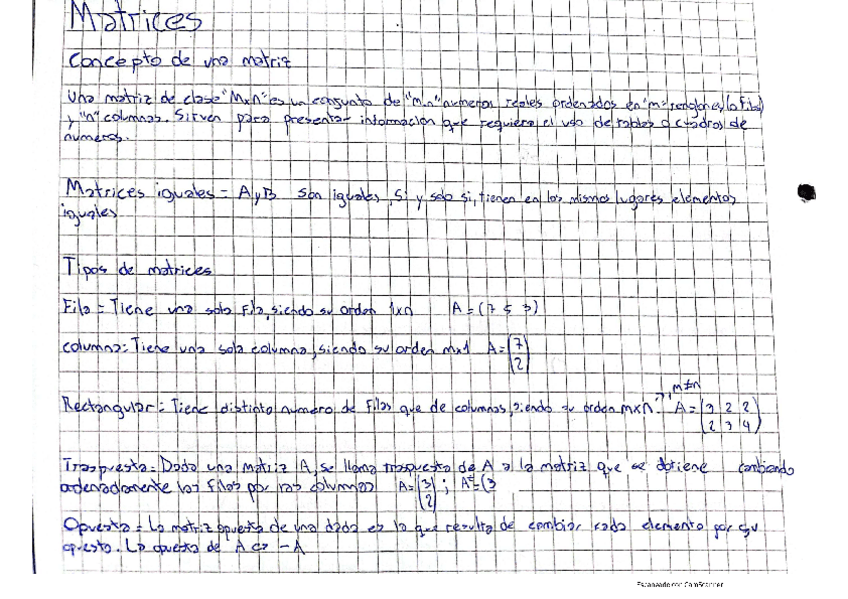 Matrices
Concepto de una matriz
Una matriz de clase "Mxn" es un conjunto de "m.n" numeros reales ordenados en "m" renglones (o fila)
y "n" columnas. Sirven para presentar informacion que requiere el uso de tablas o cuadros de
numeros.
Matrices iguales = A y B son iguales, si y solo si, tienen en los mismos lugares elementos
iguales
Tipos de matrices
Fila = Tiene una sola fila, siendo su orden 1xn A = (7 5 3)
columna: Tiene una sola columna, siendo su orden mx1 A = (7
2)
m≠n
Rectangular = Tiene distinto numero de filas que de columnas, siendo su orden mxn A = (3 2 2
2 3 4)
Traspuesta = Dada una matriz A, se llama traspuesta de A a la matriz que se obtiene cambiando
ordenadamente las filas por las columnas A = (3
2) ; Aᵗ = (3
Opuesta = La matriz opuesta de una dada es la que resulta de cambiar cada elemento por su
opuesto. La opuesta de A es -A
Escaneado con CamScanner